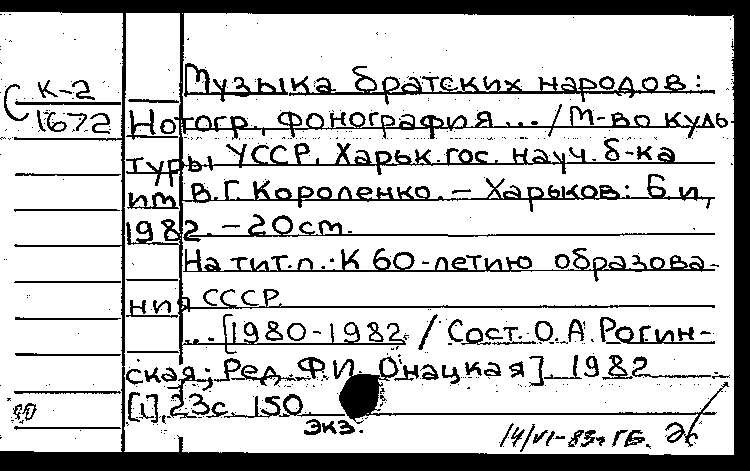 К-2
1672
Музыка братских народов:
Нотогр., фонография... / М-во куль-
туры УССР. Харьк. гос. науч. б-ка
им В.Г. Короленко. – Харьков: Б.и,
1982. – 20 см.
На тит.л.: К 60-летию образова-
ния СССР
... [1980-1982 / Сост. О.А. Рогин-
ская; Ред. Ф.И. Онацкая]. 1982
[1], 23с. 150
экз.
14/VI-83г ГБ.